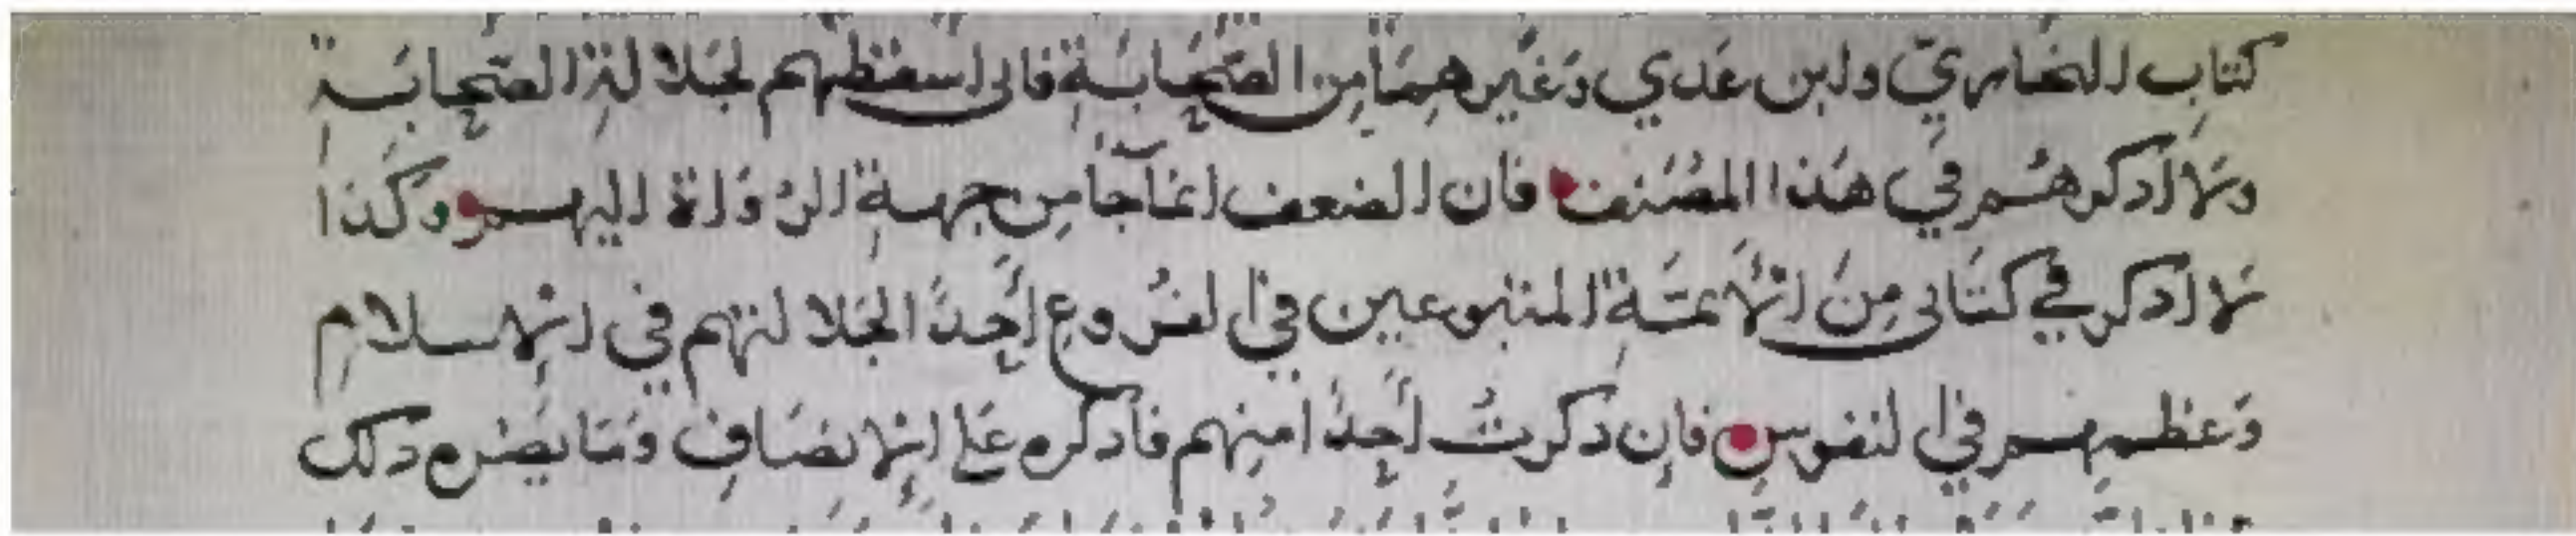 كتاب البخاريّ وابن عَدي وَغَيرهمَا مِن الصَّحَابَةِ فانى اسقطهم لجَلالةِ الصَّحابَةِ
وَلا اَذكرهُم في هَذا المصَنف فان الضعف انما جآ مِن جِهةِ الرُّوَاة اليهم وكَذا
لا اَذكر في كتَابى مِنَ الأئمَّةِ المتبوعين في الفرُوع اَحدًا لجَلالتهم في الإسلامِ
وَعَظمتهم في النفوسِ فاِن ذكرتُ اَحدًا منهم فاَذكره عَلى الإنصَافِ وَمَا يَضرّه ذلك